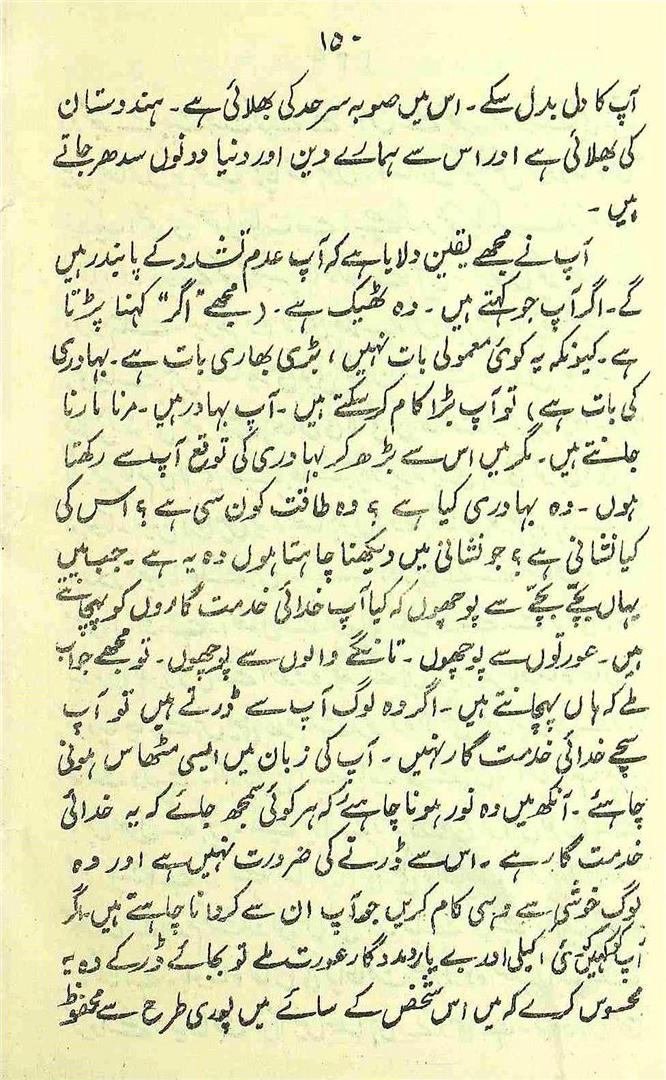 ۱۵۰
آپ کا دل بدل سکے۔ اس میں صوبہ سرحد کی بھلائی ہے۔ ہندوستان
کی بھلائی ہے اور اس سے ہمارے دین اور دنیا دونوں سدھر جاتے
ہیں۔
آپ نے مجھے یقین دلایا ہے کہ آپ عدم تشدد کے پابند رہیں
گے۔ اگر آپ جو کہتے ہیں۔ وہ ٹھیک ہے۔ (مجھے "اگر" کہنا پڑتا
ہے۔ کیونکہ یہ کوئی معمولی بات نہیں، بڑی بھاری بات ہے۔ بہادری
کی بات ہے) تو آپ بڑا کام کر سکتے ہیں۔ آپ بہادر ہیں۔ مرنا مارنا
جانتے ہیں۔ مگر میں اس سے بڑھ کر بہادری کی توقع آپ سے رکھتا
ہوں۔ وہ بہادری کیا ہے؟ وہ طاقت کون سی ہے؟ اس کی
کیا نشانی ہے؟ جو نشانی میں دیکھنا چاہتا ہوں وہ یہ ہے۔ جب میں
یہاں بچّے بچّے سے پوچھوں کہ کیا آپ خدائی خدمت گاروں کو پہچانتے
ہیں۔ عورتوں سے پوچھوں۔ تانگے والوں سے پوچھوں۔ تو مجھے جواب
ملے کہ ہاں پہچانتے ہیں۔ اگر وہ لوگ آپ سے ڈرتے ہیں تو آپ
سچے خدائی خدمت گار نہیں۔ آپ کی زبان میں ایسی مٹھاس ہونی
چاہئے۔ آنکھ میں وہ نور ہونا چاہئے کہ ہر کوئی سمجھ جائے کہ یہ خدائی
خدمت گار ہے۔ اس سے ڈرنے کی ضرورت نہیں ہے اور وہ
لوگ خوشی سے وہی کام کریں جو آپ ان سے کروانا چاہتے ہیں۔ اگر
آپ کو کہیں کوئی اکیلی اور بے یار و مددگار عورت ملے تو بجائے ڈر کے وہ یہ
محسوس کرے کہ میں اس شخص کے سائے میں پوری طرح سے محفوظ